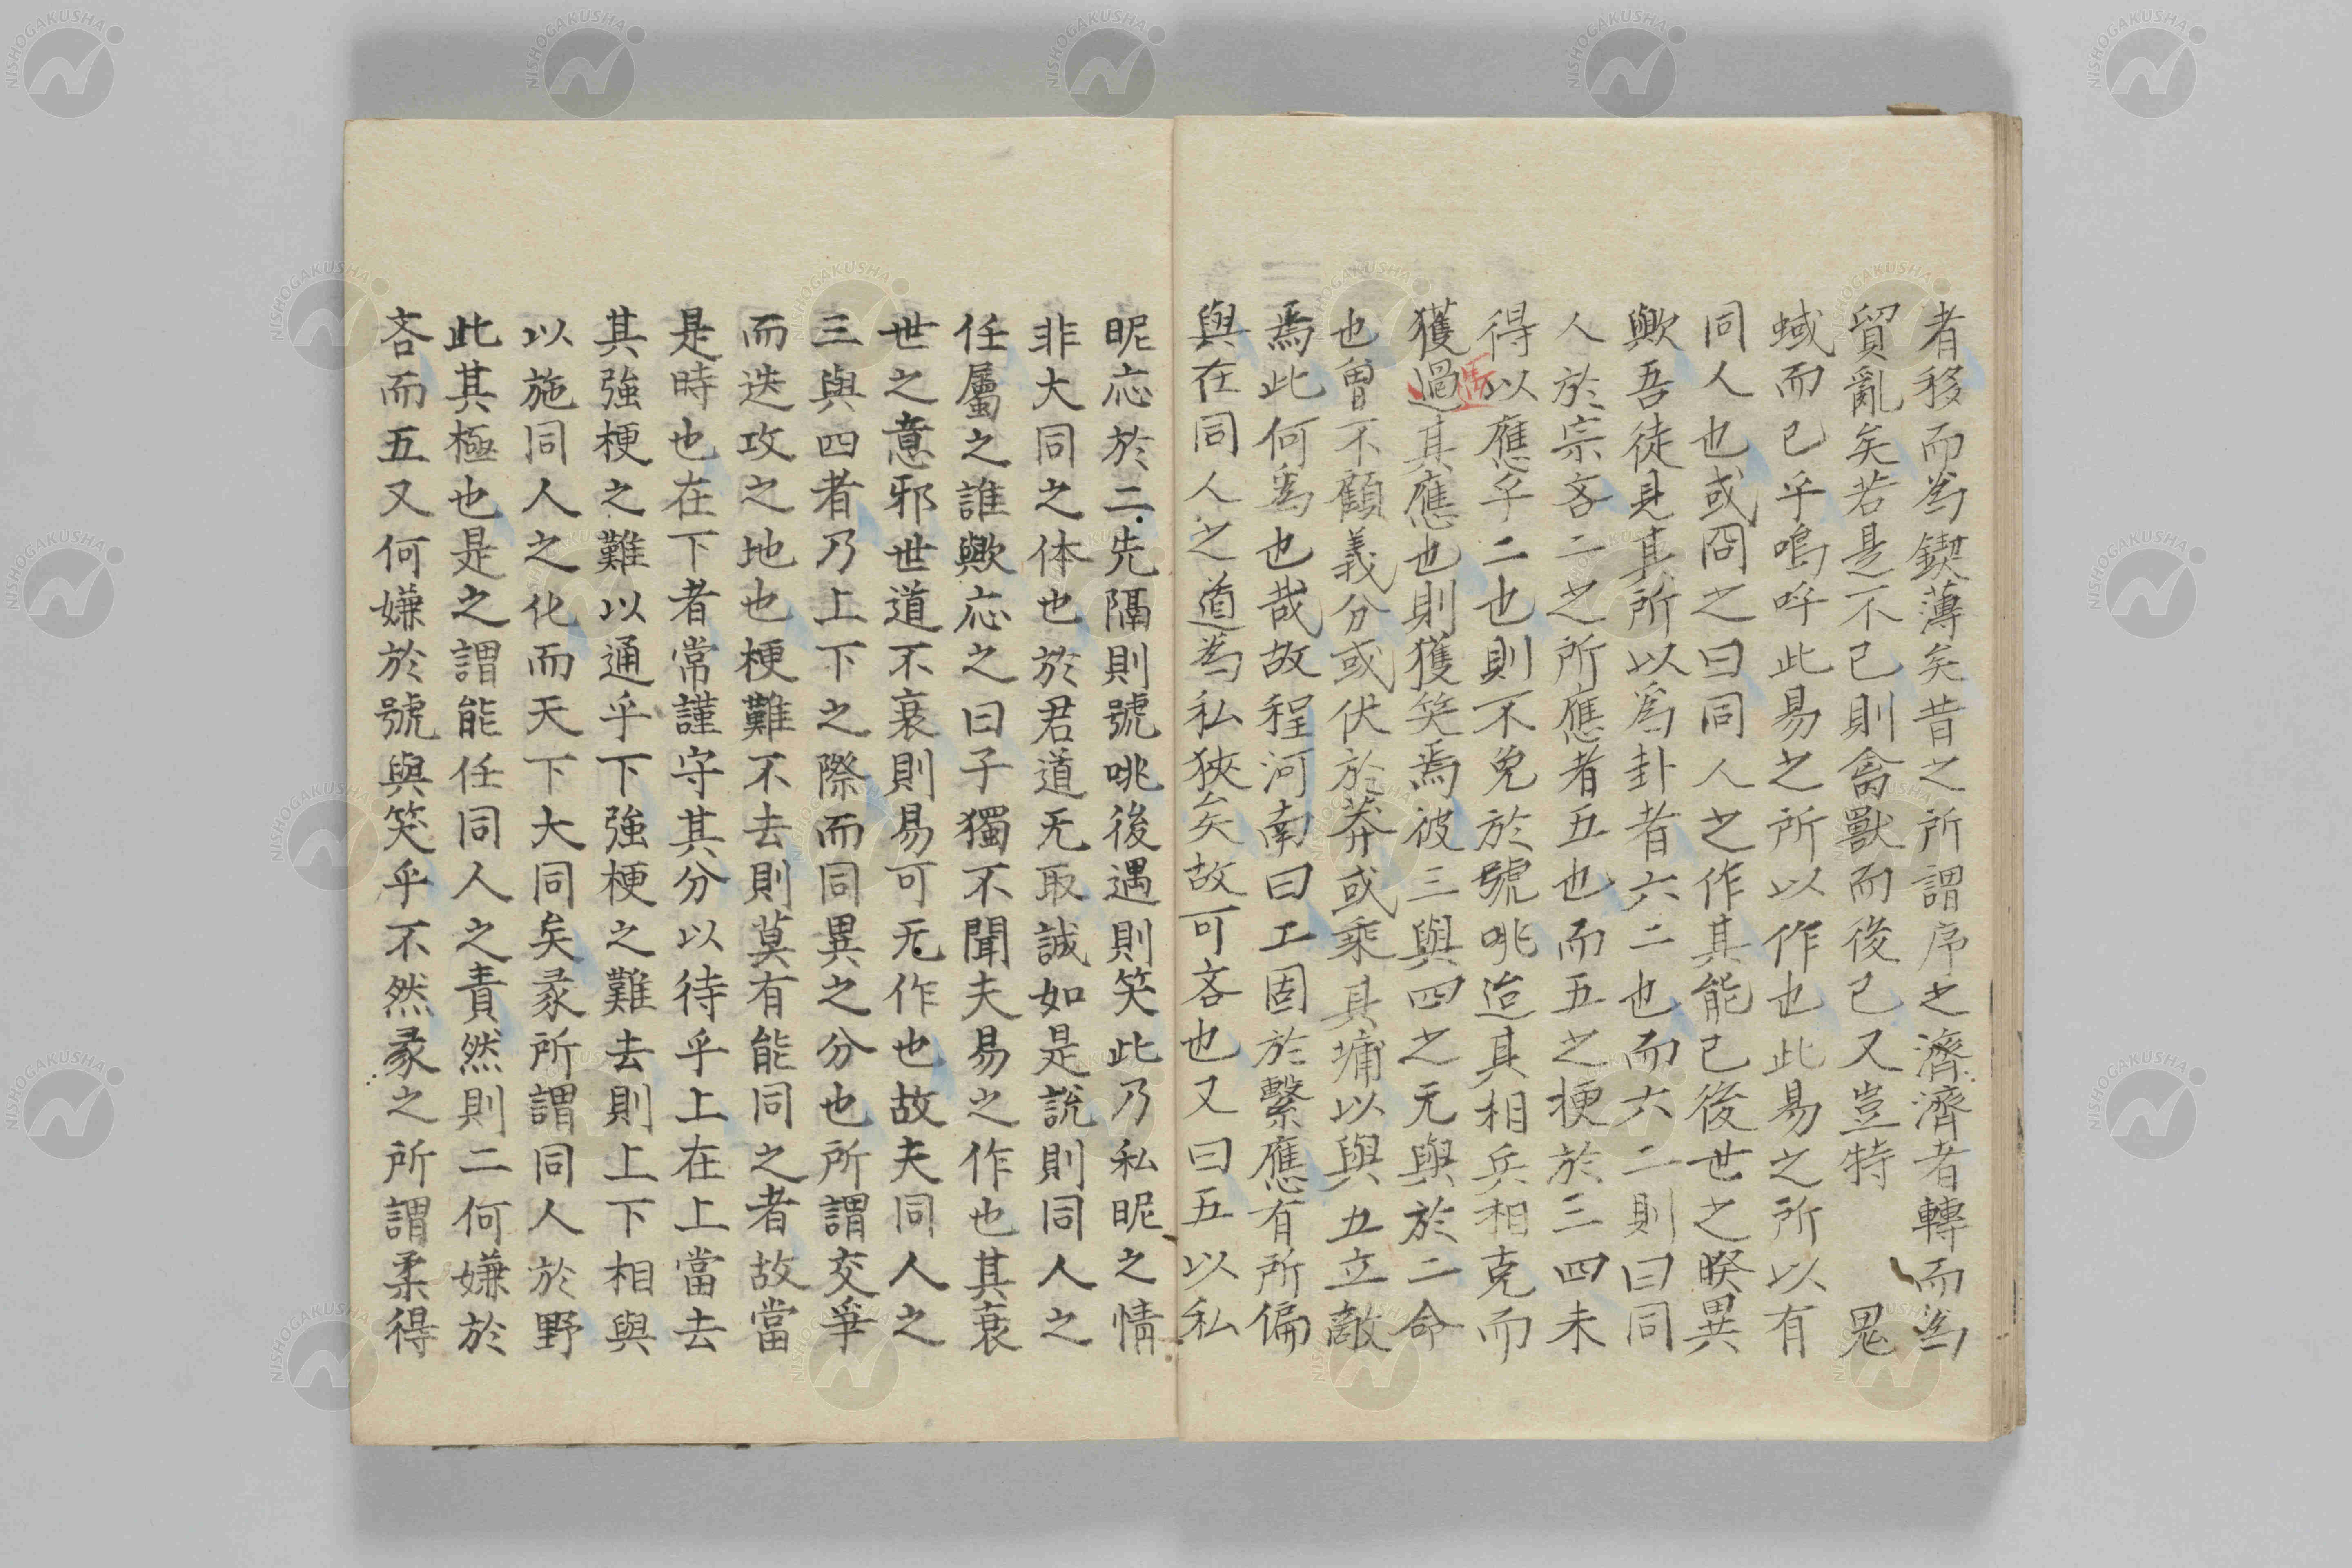 者移而為鍥薄矣昔之所謂序之濟濟者轉而為
貿亂矣若是不已則禽獸而後已又豈特 鬼
蜮而已乎嗚呼此易之所以作也此易之所以有
同人也或問之曰同人之作其能已後世之睽異
歟吾徒見其所以為卦者六二也而六二則曰同
人於宗吝二之所應者五也而五之梗於三四未
得以應乎二也則不免於號咷迨其相兵相克而
獲過其應也則獲笑焉彼三與四之无與於二命
遇
也曾不顧義分或伏於莽或乘其墉以與五立敵
焉此何為也哉故程河南曰工固於繫應有所偏
與在同人之道為私狹矣故可吝也又曰五以私
昵応於二先隔則號咷後遇則笑此乃私昵之情
非大同之体也於君道无取誠如是說則同人之
任屬之誰歟応之曰子獨不聞夫易之作也其衰
世之意邪世道不衰則易可无作也故夫同人之
三與四者乃上下之際而同異之分也所謂交爭
而迭攻之地也梗難不去則莫有能同之者故當
是時也在下者常謹守其分以待乎上在上當去
其強梗之難以通乎下強梗之難去則上下相與
以施同人之化而天下大同矣彖所謂同人於野
此其極也是之謂能任同人之責然則二何嫌於
吝而五又何嫌於號與笑乎不然彖之所謂柔得
NISHOGAKUSHA